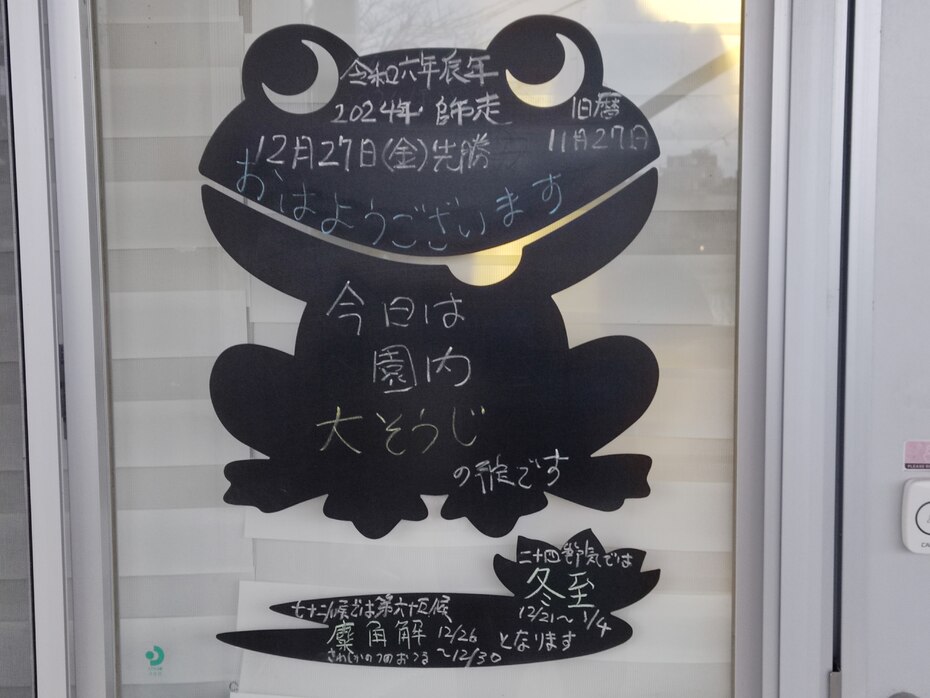 令和六年辰年
2024年・師走
旧暦
11月27日
12月27日(金)先勝
おはようございます
今日は
園内
大そうじ
の予定です
二十四節気では
冬至
12/21〜1/4
となります
七十二候では第六十五候
麋角解 12/26
〜12/30
さわしかのつのおつる